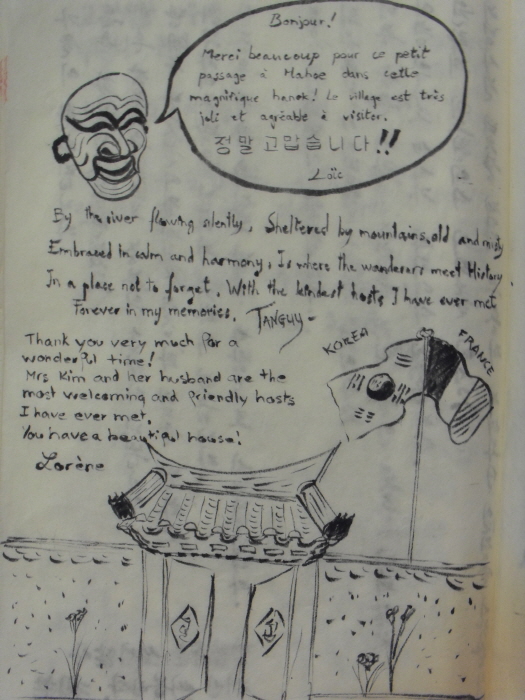 Bonjour!
Merci beaucoup pour ce petit
passage à Hahoe dans cette
magnifique hanok! Le village est très
joli et agréable à visiter.
정말 고맙습니다!!
Loïc
By the river flowing silently, Sheltered by mountains, old and misty
Embraced in calm and harmony, Is where the wanderers meet History
In a place not to forget, With the kindest hosts I have ever met
Forever in my memories. TANGUY-
KOREA
FRANCE
Thank you very much for a
wonderful time!
Mrs Kim and her husband are the
most welcoming and friendly hosts
I have ever met.
You have a beautiful house!
Lorène